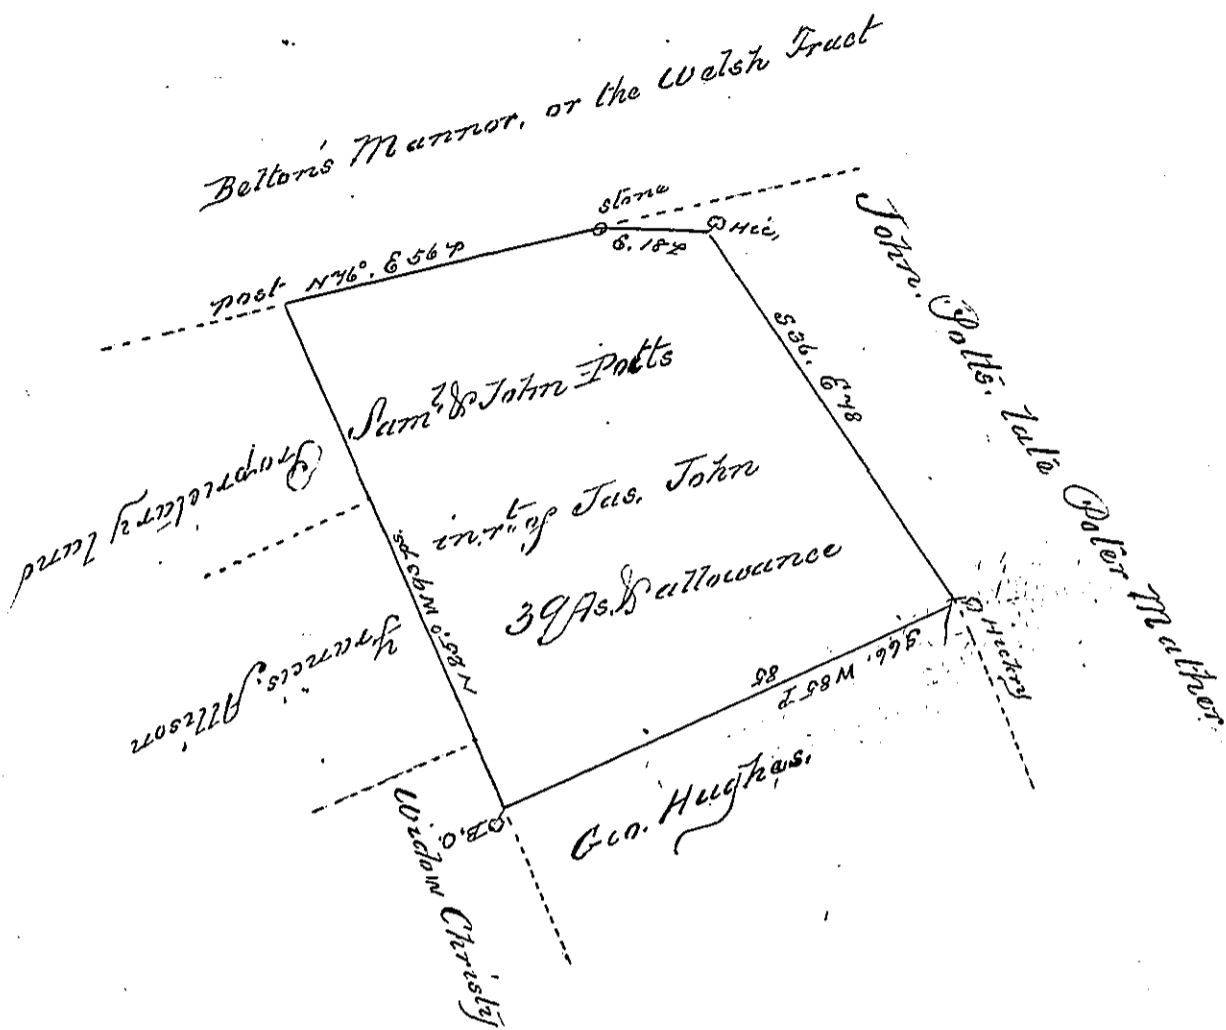 Belton's Mannor, or the Welsh Tract
stone
Hic,
E. 18 P
post
N 76°. E 56 P
S 36. E 78
John. Potts. late Peter Mather
Sam.l & John Potts
in r.t of Jas. John
39 As. & allowance
Proprietary land
Francis. Allison
N 25.° W 93 ps.
Hickry
S 66. W 85 P
85
Geo. Hughes.
B. O.
Widow Christy